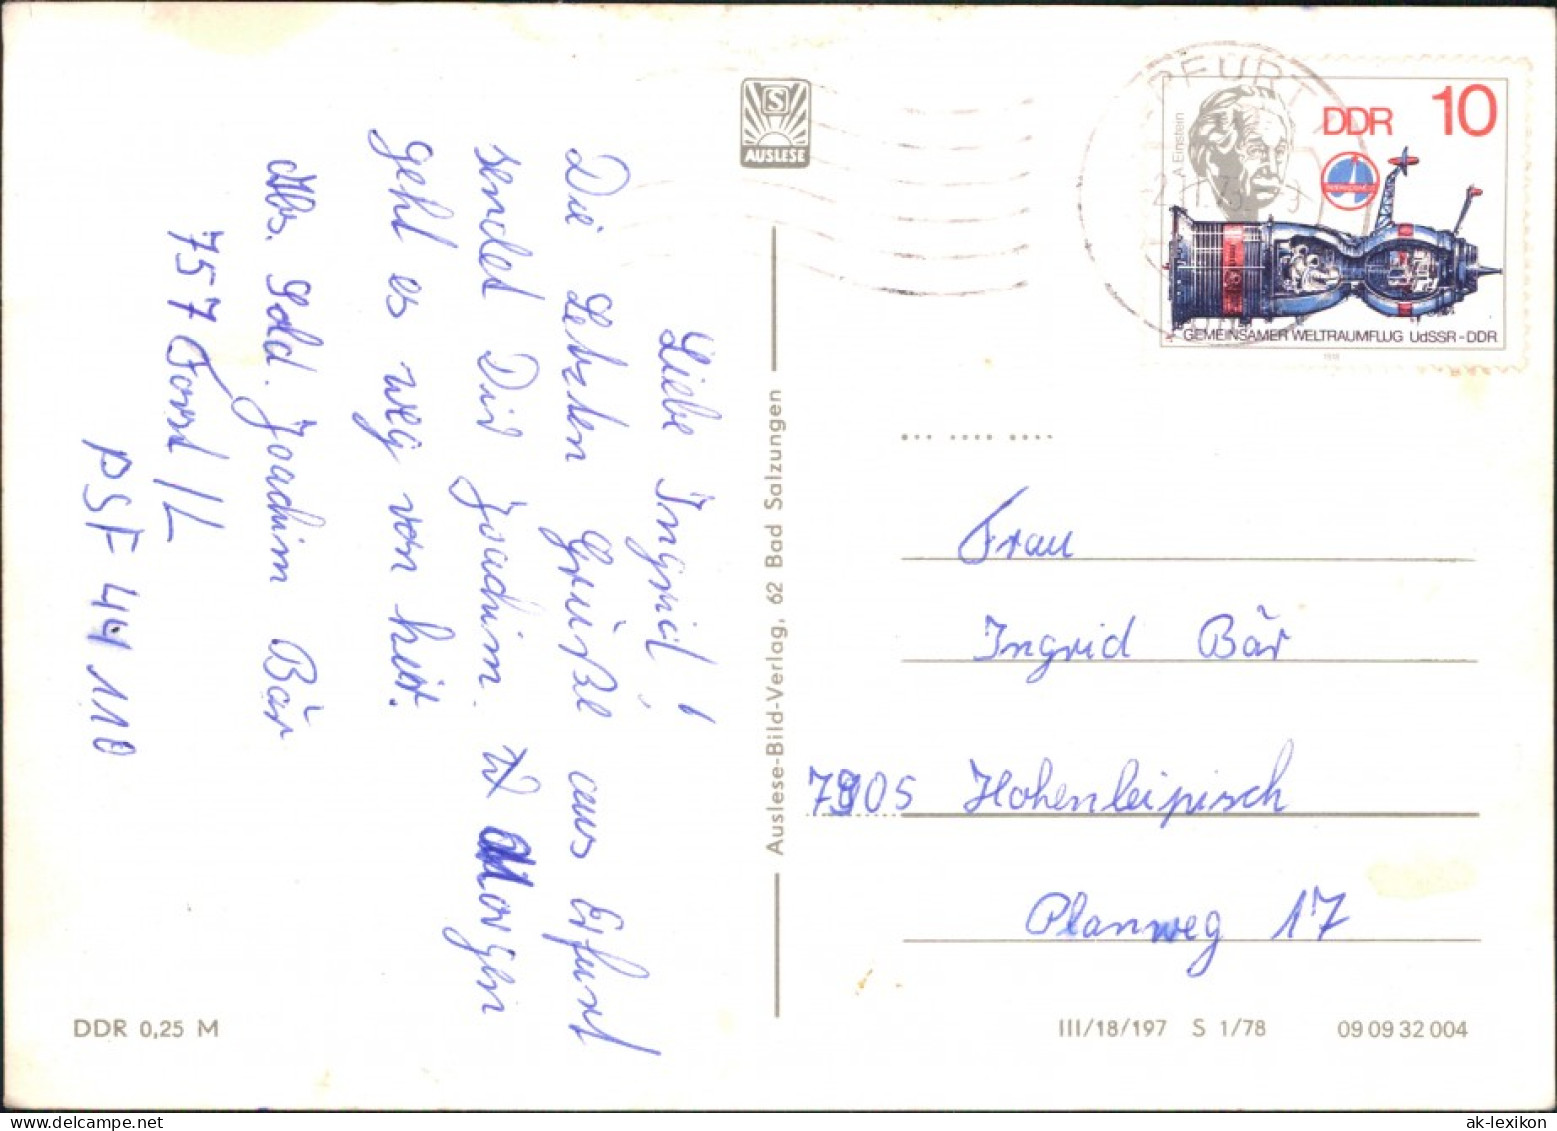 Liebe Ingrid!
Die Letzten Grüße aus Erfurt
sendet Dir Joachim. Morgen
geht es weg von hier.
Abs. Sold. Joachim Bär
757 Forst /L
PSF 44 110
S
AUSLESE
Auslese-Bild-Verlag, 62 Bad Salzungen
ERFURT
A. Einstein
DDR 10
GEMEINSAMER WELTRAUMFLUG UdSSR-DDR
1978
Frau
Ingrid Bär
7905 Hohenleipisch
Planweg 17
DDR 0,25 M
III/18/197 S 1/78 09 09 32 004
ak-lexikon.com